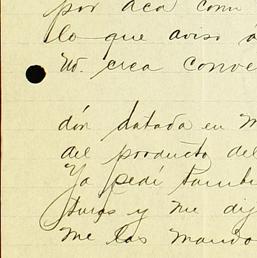 por aca com
lo que aviso á
Ud. crea conve
dón datada en M
del producto del
Ya pedí tambi
turas y me dij
me las mando